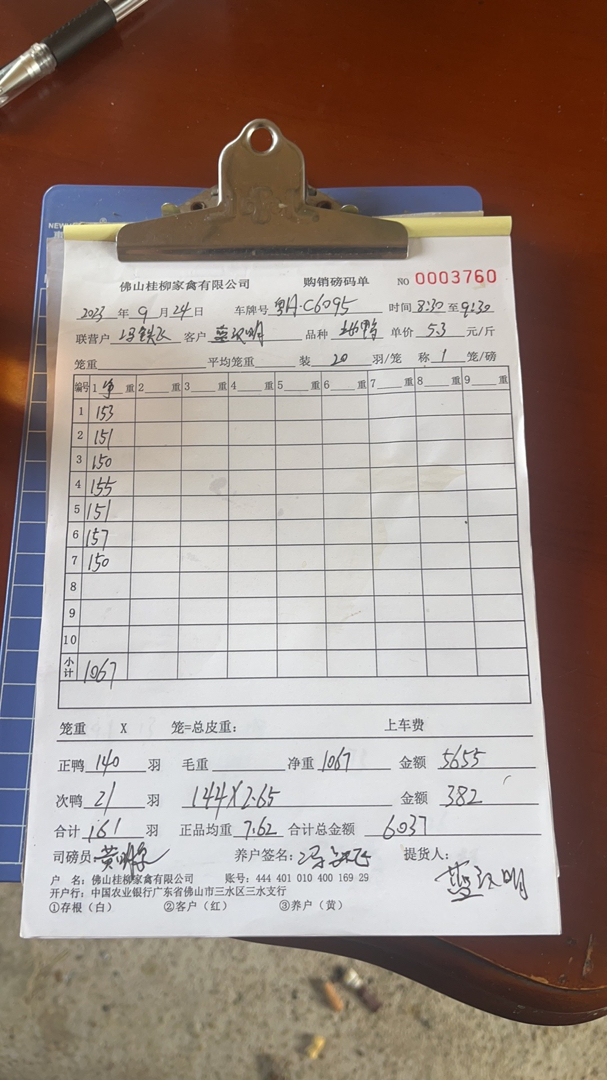 NEW
佛山桂柳家禽有限公司 购销磅码单 NO 0003760
2023 年 9 月 24 日 车牌号 粤A·C6095 时间 8:30 至 9:30
联营户 冯铁飞 客户 蓝汉明 品种 单价 5.3 元/斤
笼重 平均笼重 装 20 羽/笼 称 1 笼/磅
编号 1 净 重 2 重 3 重 4 重 5 重 6 重 7 重 8 重 9 重
1 153
2 151
3 150
4 155
5 151
6 157
7 150
8
9
10
小计 1067
笼重 X 笼=总皮重: 上车费
正鸭 140 羽 毛重 净重 1067 金额 5655
次鸭 21 羽 144X2.65 金额 382
合计 161 羽 正品均重 7.62 合计总金额 6037
司磅员: 养户签名: 冯铁飞 提货人: 蓝汉明
户 名: 佛山桂柳家禽有限公司 账号: 444 401 010 400 169 29
开户行: 中国农业银行广东省佛山市三水区三水支行
①存根(白) ②客户(红) ③养户(黄)